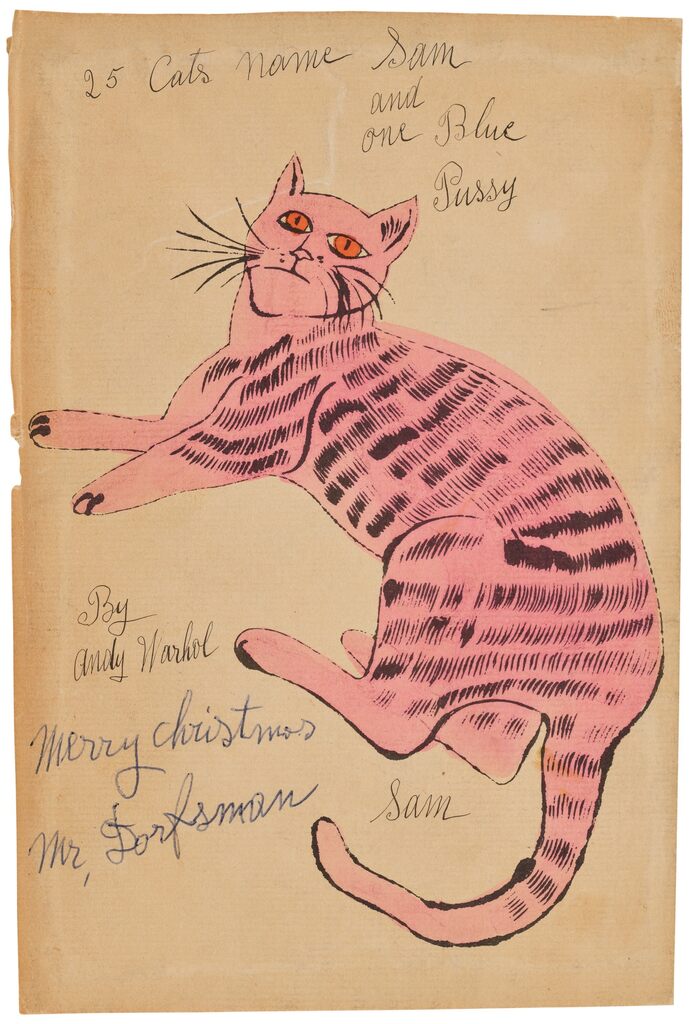 25 Cats name Sam
and
one Blue
Pussy
By
Andy Warhol
Merry christmas
Mr, Dorfsman
Sam